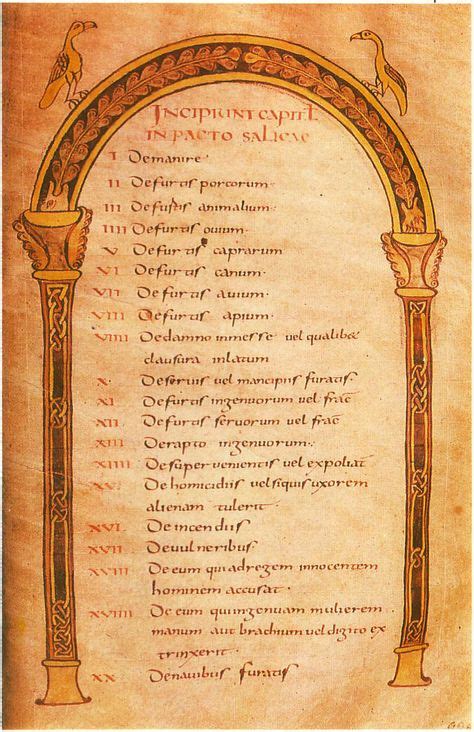 INCIPIUNT CAPITL
IN PACTO SALICAE
I De manire
II De furtis porcorum·
III De furtis animalium·
IIII De furtis ovium·
V De furtis caprarum
VI De furtis canum·
VII De furtis avium·
VIII De furtis apium·
VIIII De damno in messe vel qualibe&
clausura inlatum
X· De servis vel mancipiis furatis·
XI De furtis ingenuorum vel fra&
XII De furtis servorum vel fra&
XIII De rapto ingenuorum·
XIIII De super venientis vel expoliat
XV De homicidiis vel siquis uxorem
alienam tulerit
XVI De incendiis
XVII De vulneribus·
XVIII De eum qui ad regem innocentem
hominem accusat·
XVIIII De eum qui ingenuam mulierem
manum aut brachium vel digito ex
trinxerit·
XX De navibus furatis·